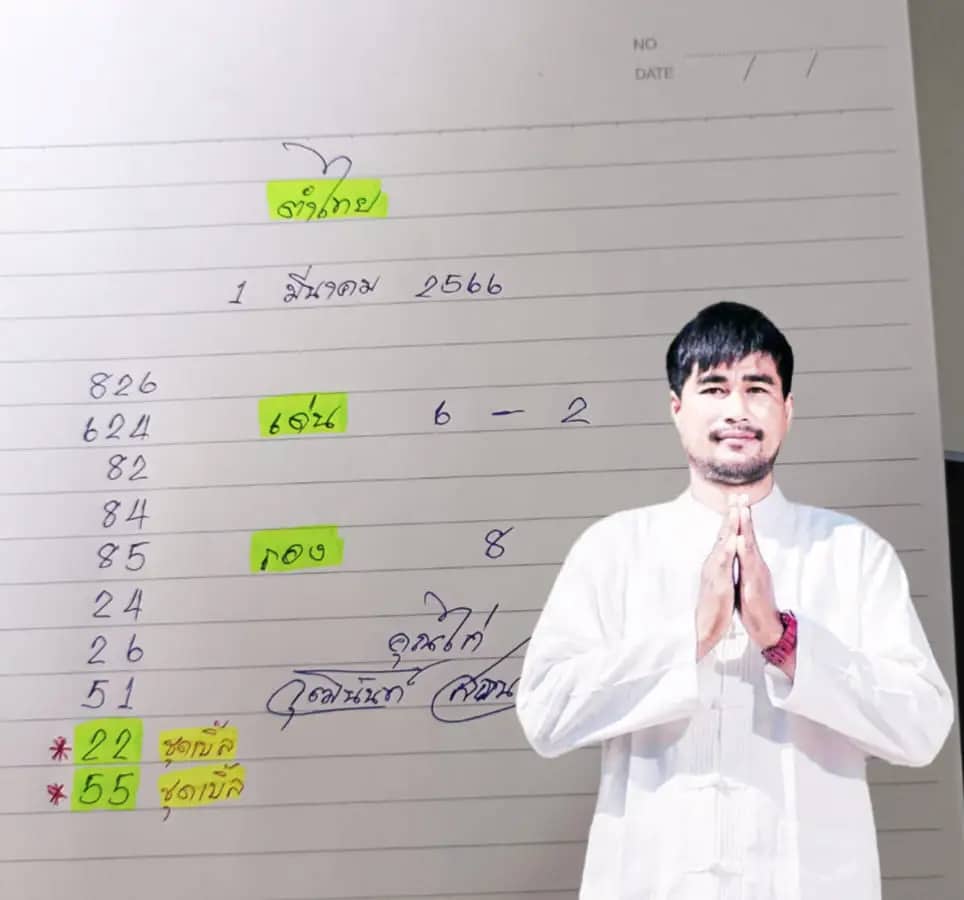 NO
DATE / /
ตำไทย
1 มีนาคม 2566
826
624 เด่น 6 - 2
82
84
85 รอง 8
24
26 คุณไก่
51 วุฒินันท์
*22 ชุดเบิ้ล
*55 ชุดเบิ้ล